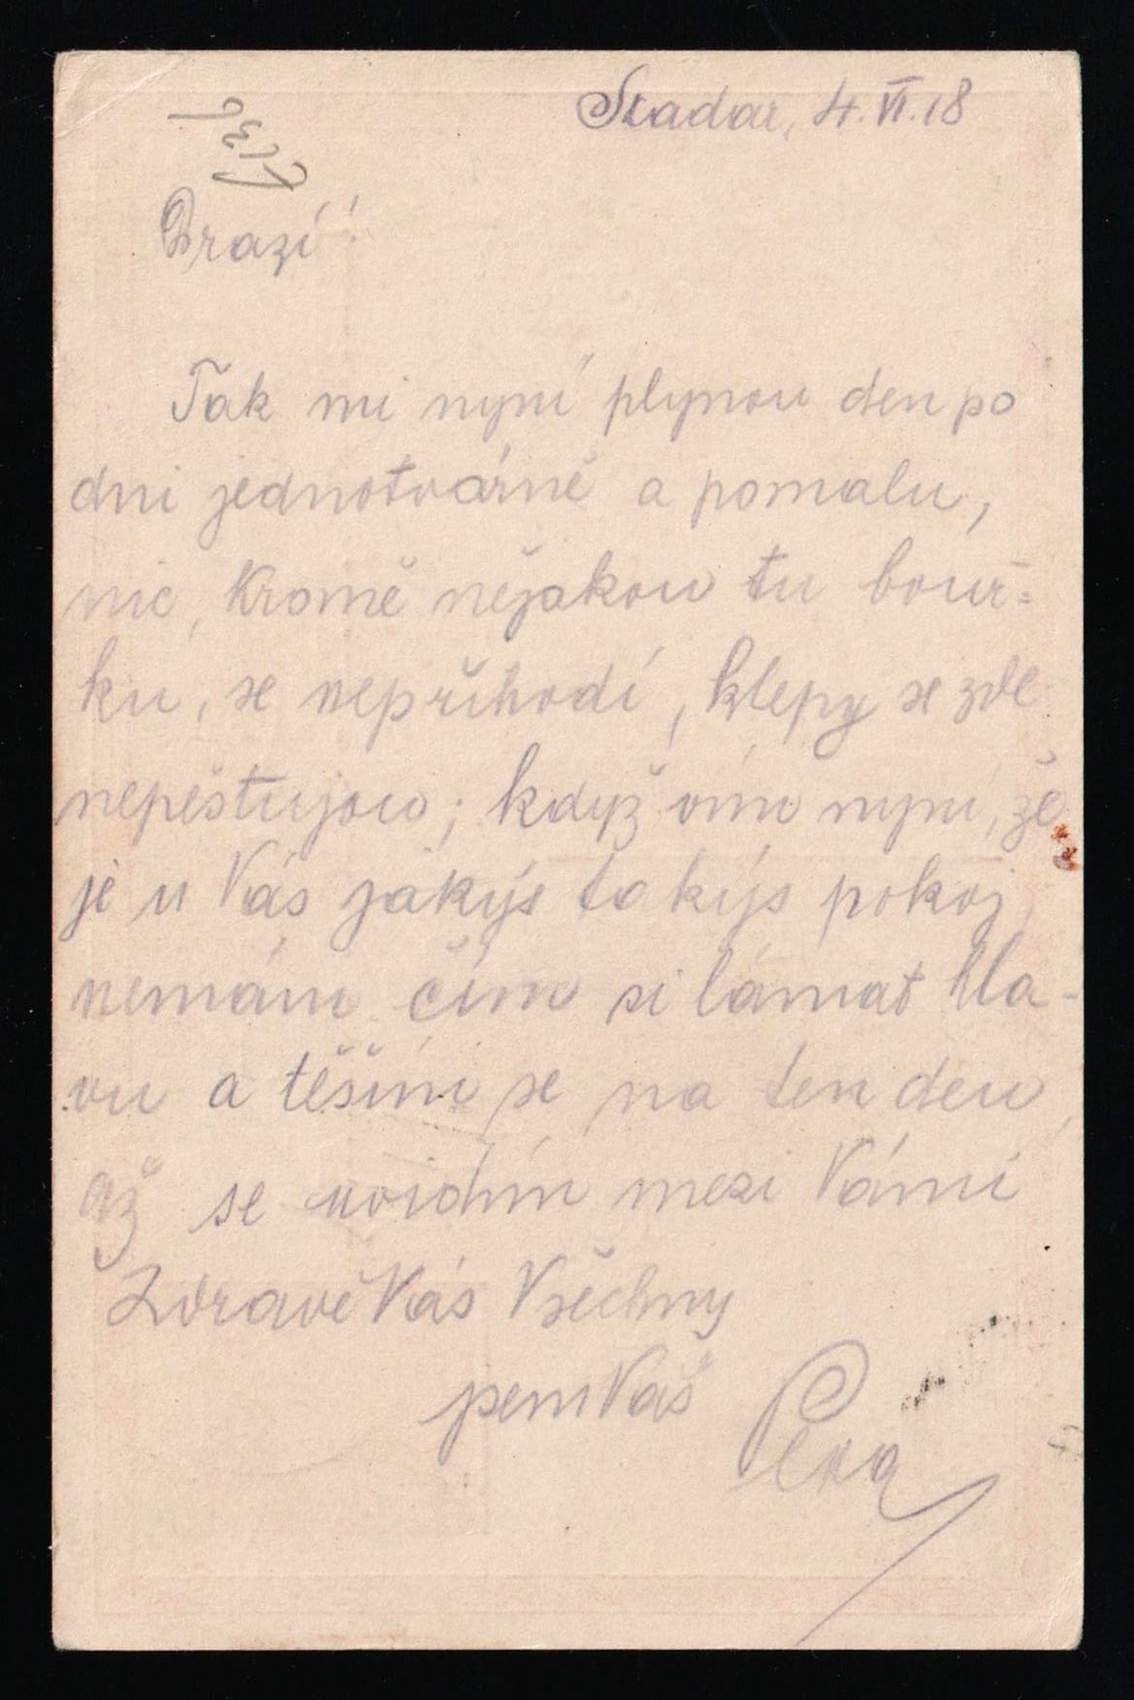 Skadar, 4. VI. 18
Drazí!
Tak mi nyní plynou den po
dni jednotvárně a pomalu,
nic, kromě nějakou tu bouř=
ku, se nepřihodí, klepy se zde
nepěstujou; když vím nyní, že
je u Vás jakýs takýs pokoj,
nemám čím si lámat hla-
vu a těším se na ten den,
až se uvidím mezi Vámi
Zdravě Vás Všechny
Váš